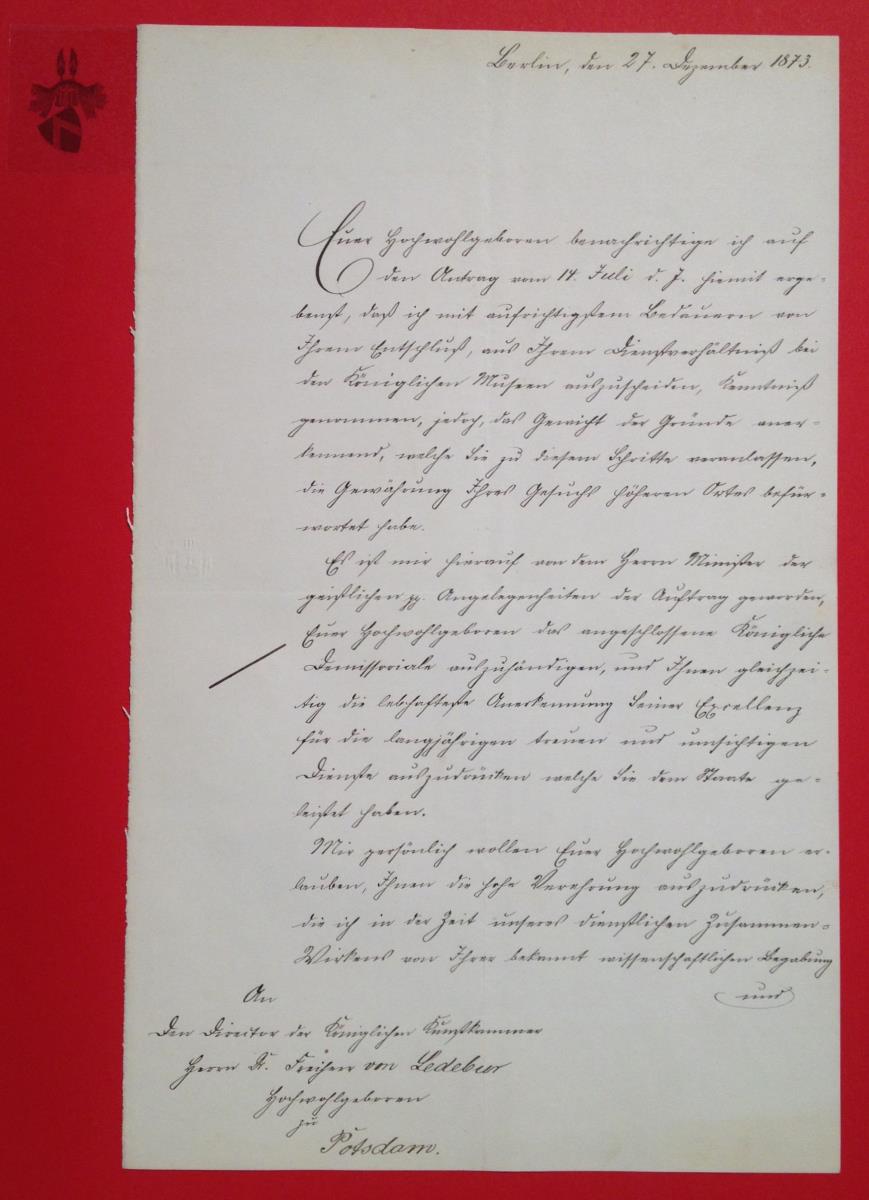 Berlin, den 27. Dezember 1873.
Euer Hochwohlgeboren benachrichtige ich auf
den Antrag vom 14. Juli d. J. hiemit erge-
benst, daß ich mit aufrichtigstem Bedauern von
Ihrem Entschluß, aus Ihrem Dienstverhältniß bei
den Königlichen Museen auszuscheiden, Kenntniß
genommen, jedoch, das Gewicht der Gründe aner-
kennend, welche Sie zu diesem Schritte veranlassen,
die Gewährung Ihres Gesuchs höheren Ortes befür-
wortet habe.
Es ist mir hierauf von dem Herrn Minister der
geistlichen pp. Angelegenheiten der Auftrag geworden,
Euer Hochwohlgeboren das angeschlossene Königliche
Demissoriale auszuhändigen, und Ihnen gleichzei-
tig die lebhafteste Anerkennung Seiner Excellenz
für die langjährigen treuen und umsichtigen
Dienste auszudrücken welche Sie dem Staate ge-
leistet haben.
Mir persönlich wollen Euer Hochwohlgeboren er-
lauben, Ihnen die hohe Verehrung auszudrücken,
die ich in der Zeit unseres dienstlichen Zusammen-
Wirkens von Ihrer bekannt wissenschaftlichen Begabung
und
An
Den Director der Königlichen Kunstkammer
Herrn Dr. Freiherr von Ledebur
Hochwohlgeboren
zu
Potsdam.